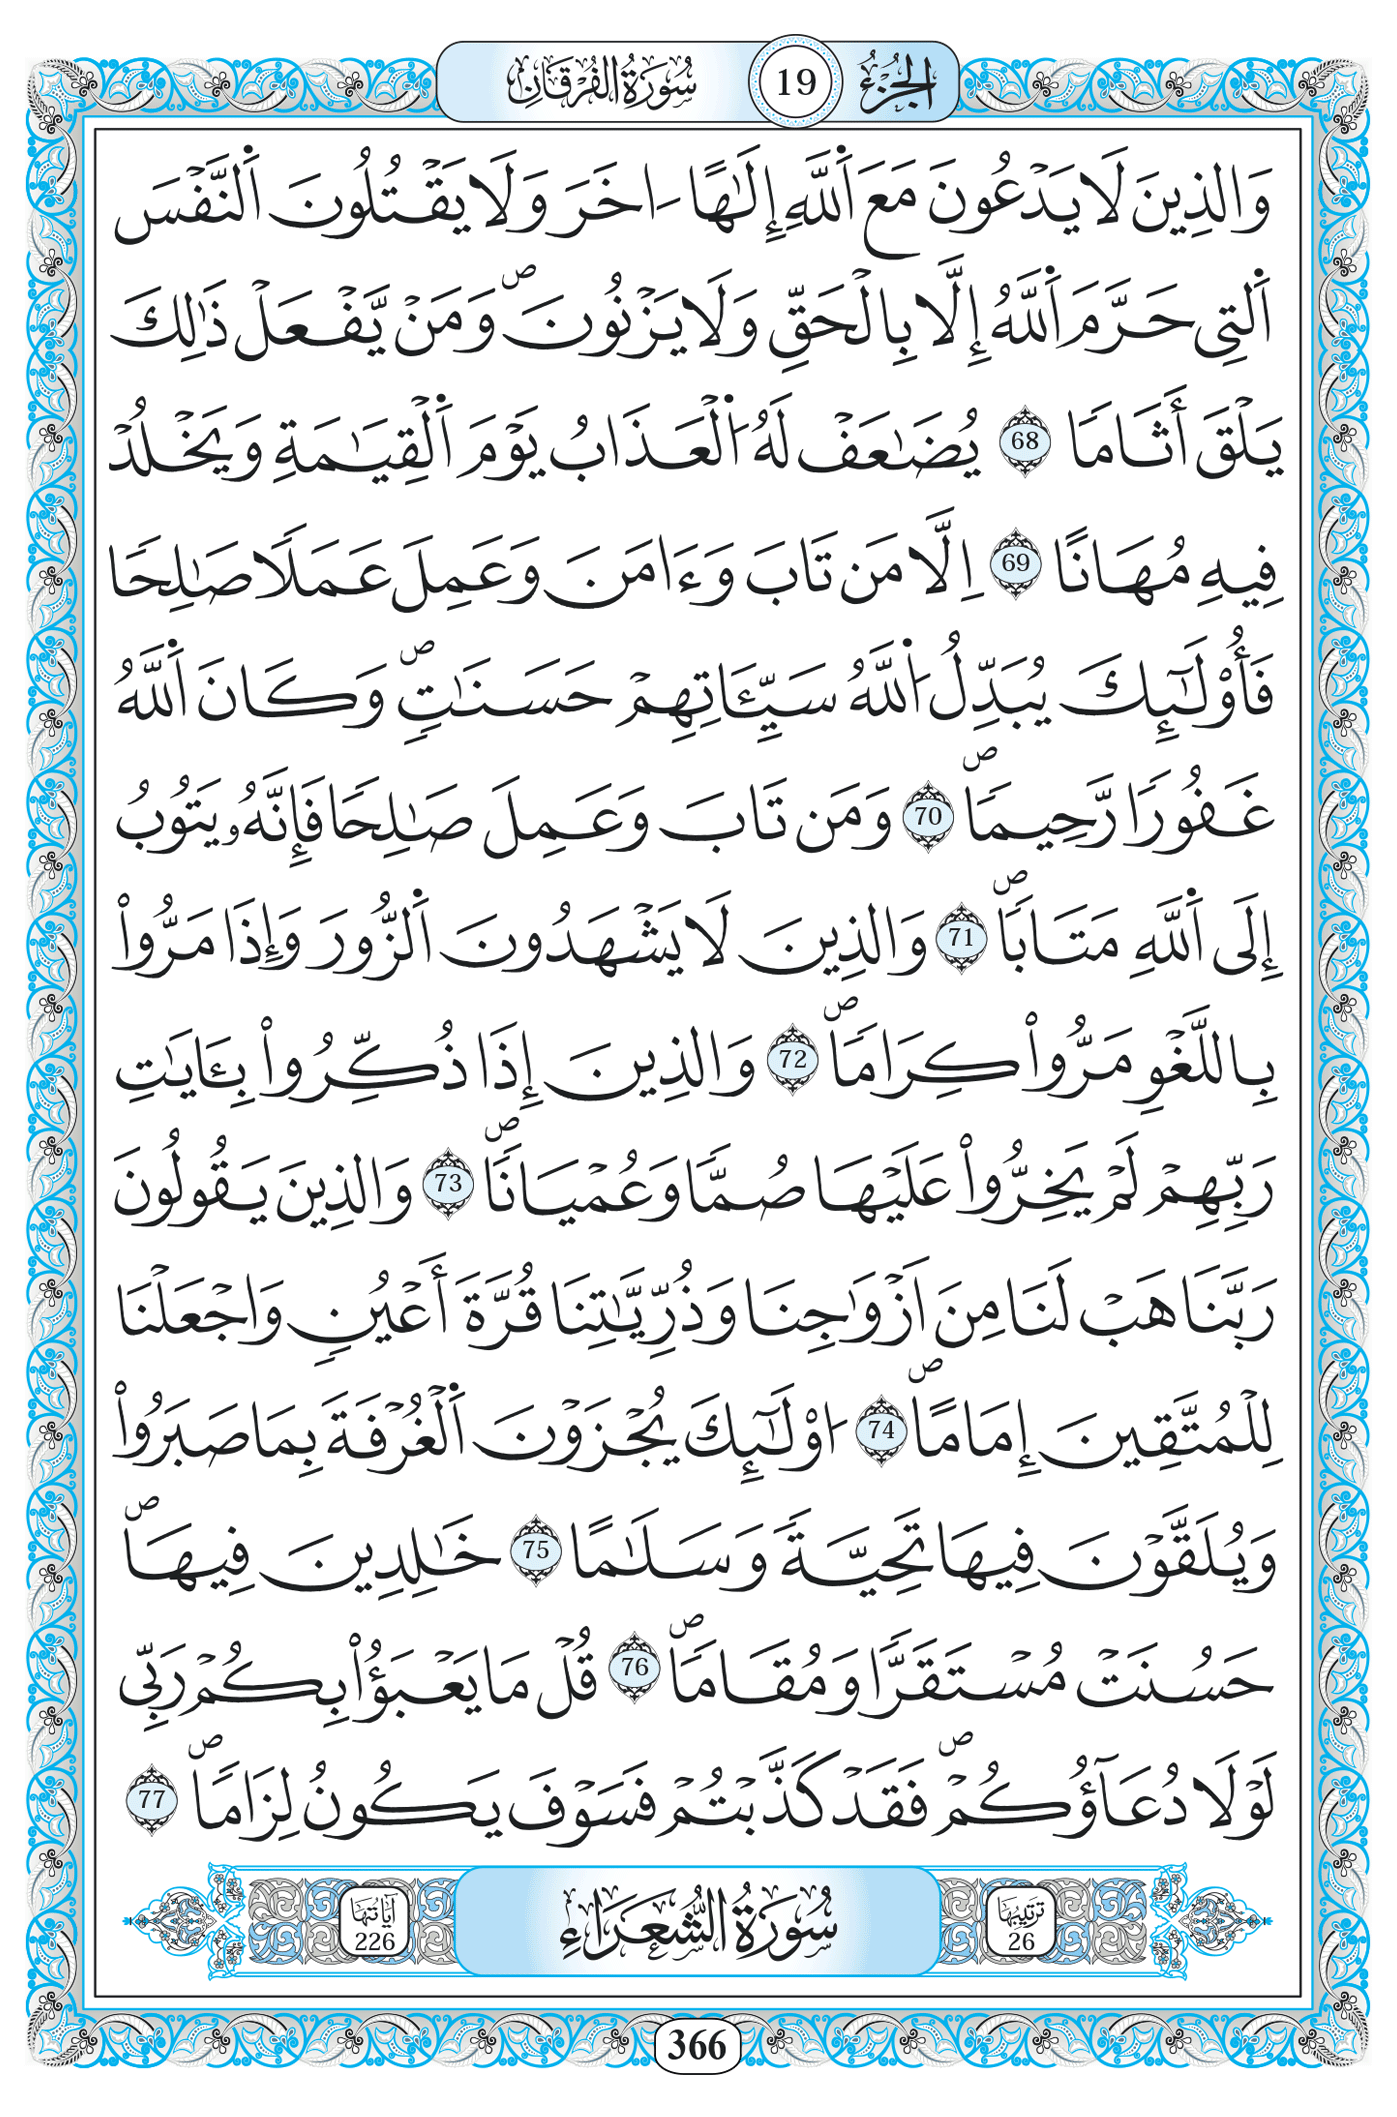 الجزء 19 سورة الفرقان
وَالذِينَ لَا يَدْعُونَ مَعَ اَ۬للَّهِ إِلَٰهًا اٰخَرَ وَلَا يَقْتُلُونَ اَ۬لنَّفْسَ
اَ۬لتِي حَرَّمَ اَ۬للَّهُ إِلَّا بِالْحَقِّ وَلَا يَزْنُونَ ص وَمَنْ يَّفْعَلْ ذَٰلِكَ
يَلْقَ أَثَامًا 68 يُضَٰعَفْ لَهُ اُ۬لْعَذَابُ يَوْمَ اَ۬لْقِيَٰمَةِ وَيَخْلُدْ
فِيهِ مُهَانًا 69 اِلَّا مَن تَابَ وَءَامَنَ وَعَمِلَ عَمَلًا صَٰلِحًا
فَأُوْلَٰٓئِكَ يُبَدِّلُ اُ۬للَّهُ سَيِّـَٔاتِهِمْ حَسَنَٰتٍ ص وَكَانَ اَ۬للَّهُ
غَفُورًا رَّحِيمًا ص 70 وَمَن تَابَ وَعَمِلَ صَٰلِحًا فَإِنَّهُۥ يَتُوبُ
إِلَى اَ۬للَّهِ مَتَابًا ص 71 وَالذِينَ لَا يَشْهَدُونَ اَ۬لزُّورَ وَإِذَا مَرُّواْ
بِاللَّغْوِ مَرُّواْ كِرَامًا ص 72 وَالذِينَ إِذَا ذُكِّرُواْ بِـَٔايَٰتِ
رَبِّهِمْ لَمْ يَخِرُّواْ عَلَيْهَا صُمًّا وَعُمْيَانًا ص 73 وَالذِينَ يَقُولُونَ
رَبَّنَا هَبْ لَنَا مِنَ اَزْوَٰجِنَا وَذُرِّيَّٰتِنَا قُرَّةَ أَعْيُنٍ وَاجْعَلْنَا
لِلْمُتَّقِينَ إِمَامًا ص 74 اُوْلَٰٓئِكَ يُجْزَوْنَ اَ۬لْغُرْفَةَ بِمَا صَبَرُواْ
وَيُلَقَّوْنَ فِيهَا تَحِيَّةً وَسَلَٰمًا 75 خَٰلِدِينَ فِيهَا ص
حَسُنَتْ مُسْتَقَرًّا وَمُقَامًا ص 76 قُلْ مَا يَعْبَؤُاْ بِكُمْ رَبِّي
لَوْلَا دُعَآؤُكُمْ ص فَقَدْ كَذَّبْتُمْ فَسَوْفَ يَكُونُ لِزَامًا ص 77
ترتيبها 26 سورة الشعراء آياتها 226
366